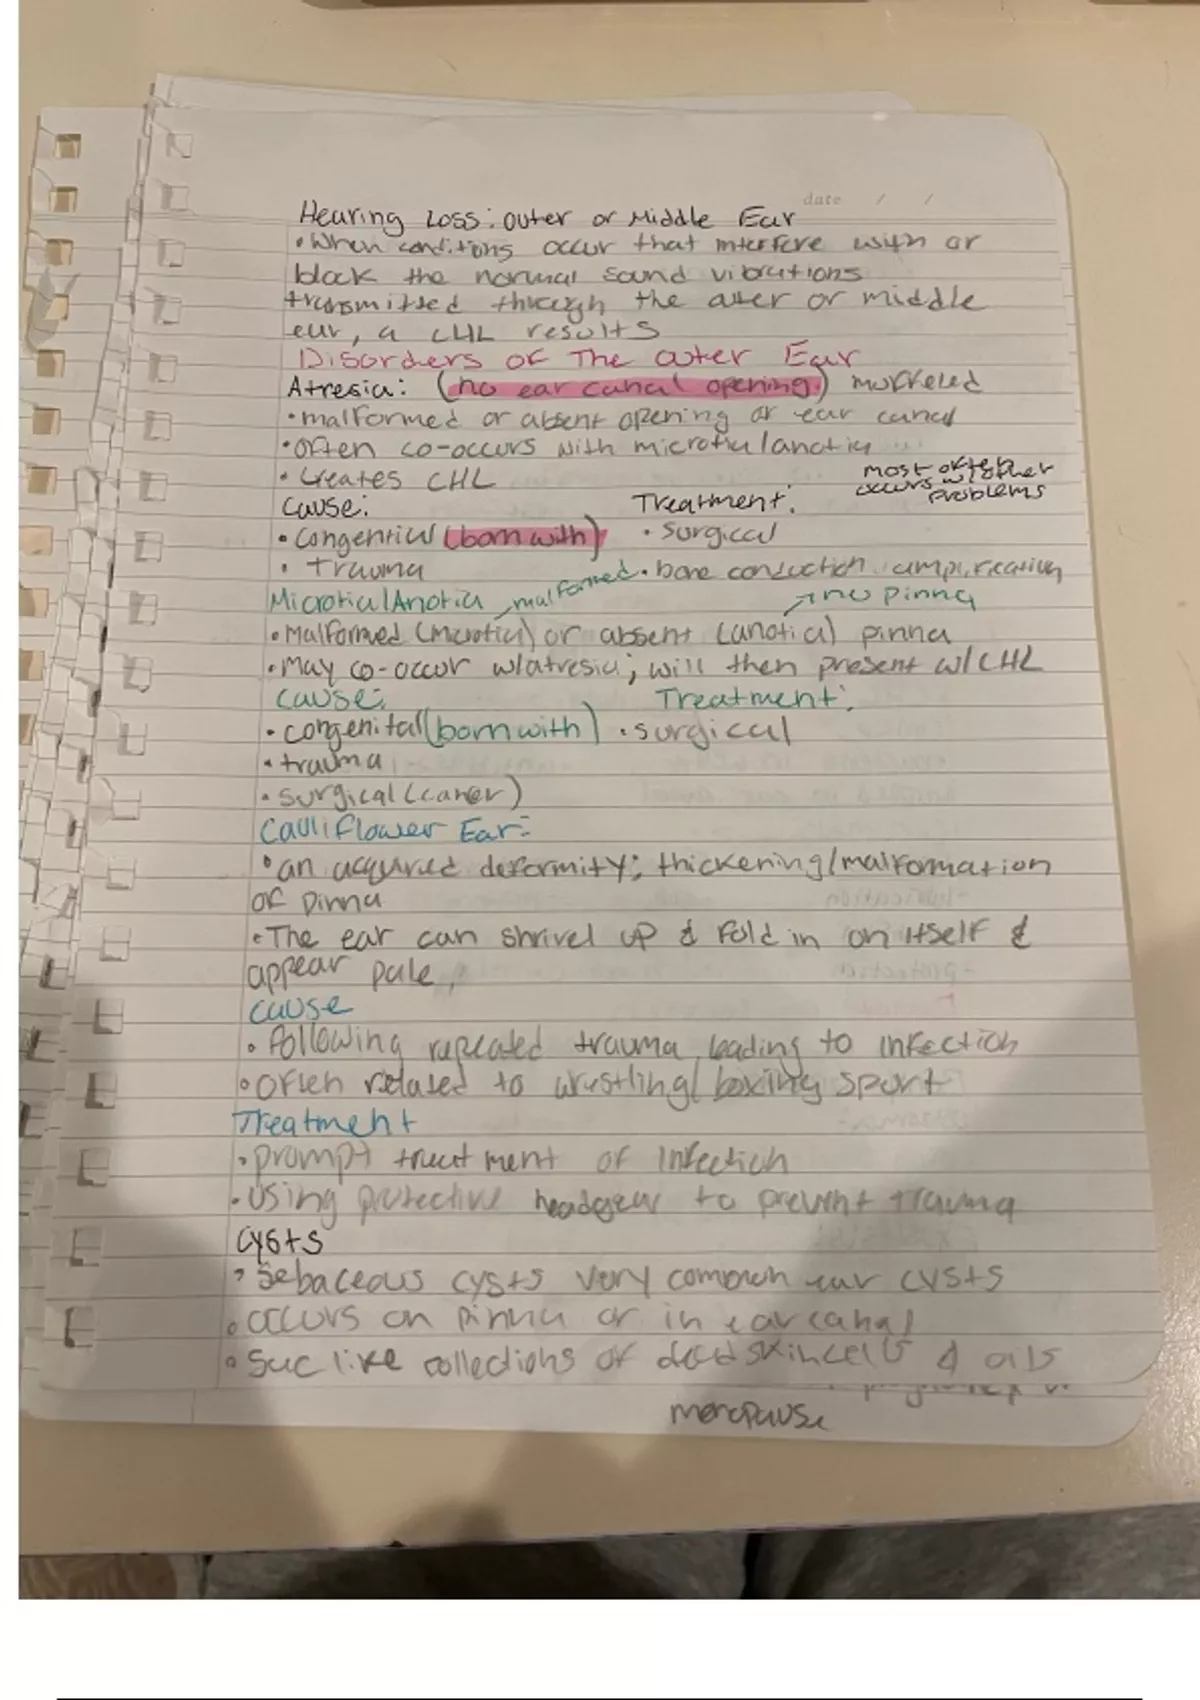 date / /
Hearing Loss: outer or Middle Ear
• When conditions occur that interfere with or
block the normal sound vibrations
transmitted through the outer or middle
ear, a CHL results
Disorders of The outer Ear
Atresia: (no ear canal opening.) muffeled
• malformed or absent opening or ear canal
• often co-occurs with microtia/anotia
• Creates CHL
most often
occurs w/other
problems
Cause: Treatment:
• Congential (born with) • Surgical
• Trauma • bone conduction amplification
Microtia/Anotia malformed no pinna
• Malformed (Microtia) or absent (anotia) pinna
• May co-occur w/atresia; will then present w/CHL
Cause: Treatment:
• congenital (born with) • surgical
• trauma
• surgical (cancer)
Cauliflower Ear:
• an acquired deformity; thickening/malformation
of pinna
• The ear can shrivel up & fold in on itself &
appear pale,
Cause
• Following repeated trauma leading to infection
• Often related to wrestling/boxing sport
Treatment
• prompt treatment of infection
• Using protective headgear to prevent trauma
Cysts
• Sebaceous cysts very common ear cysts
• occurs on pinna or in ear canal
• Sac like collections of dead skin cells & oils
menopause